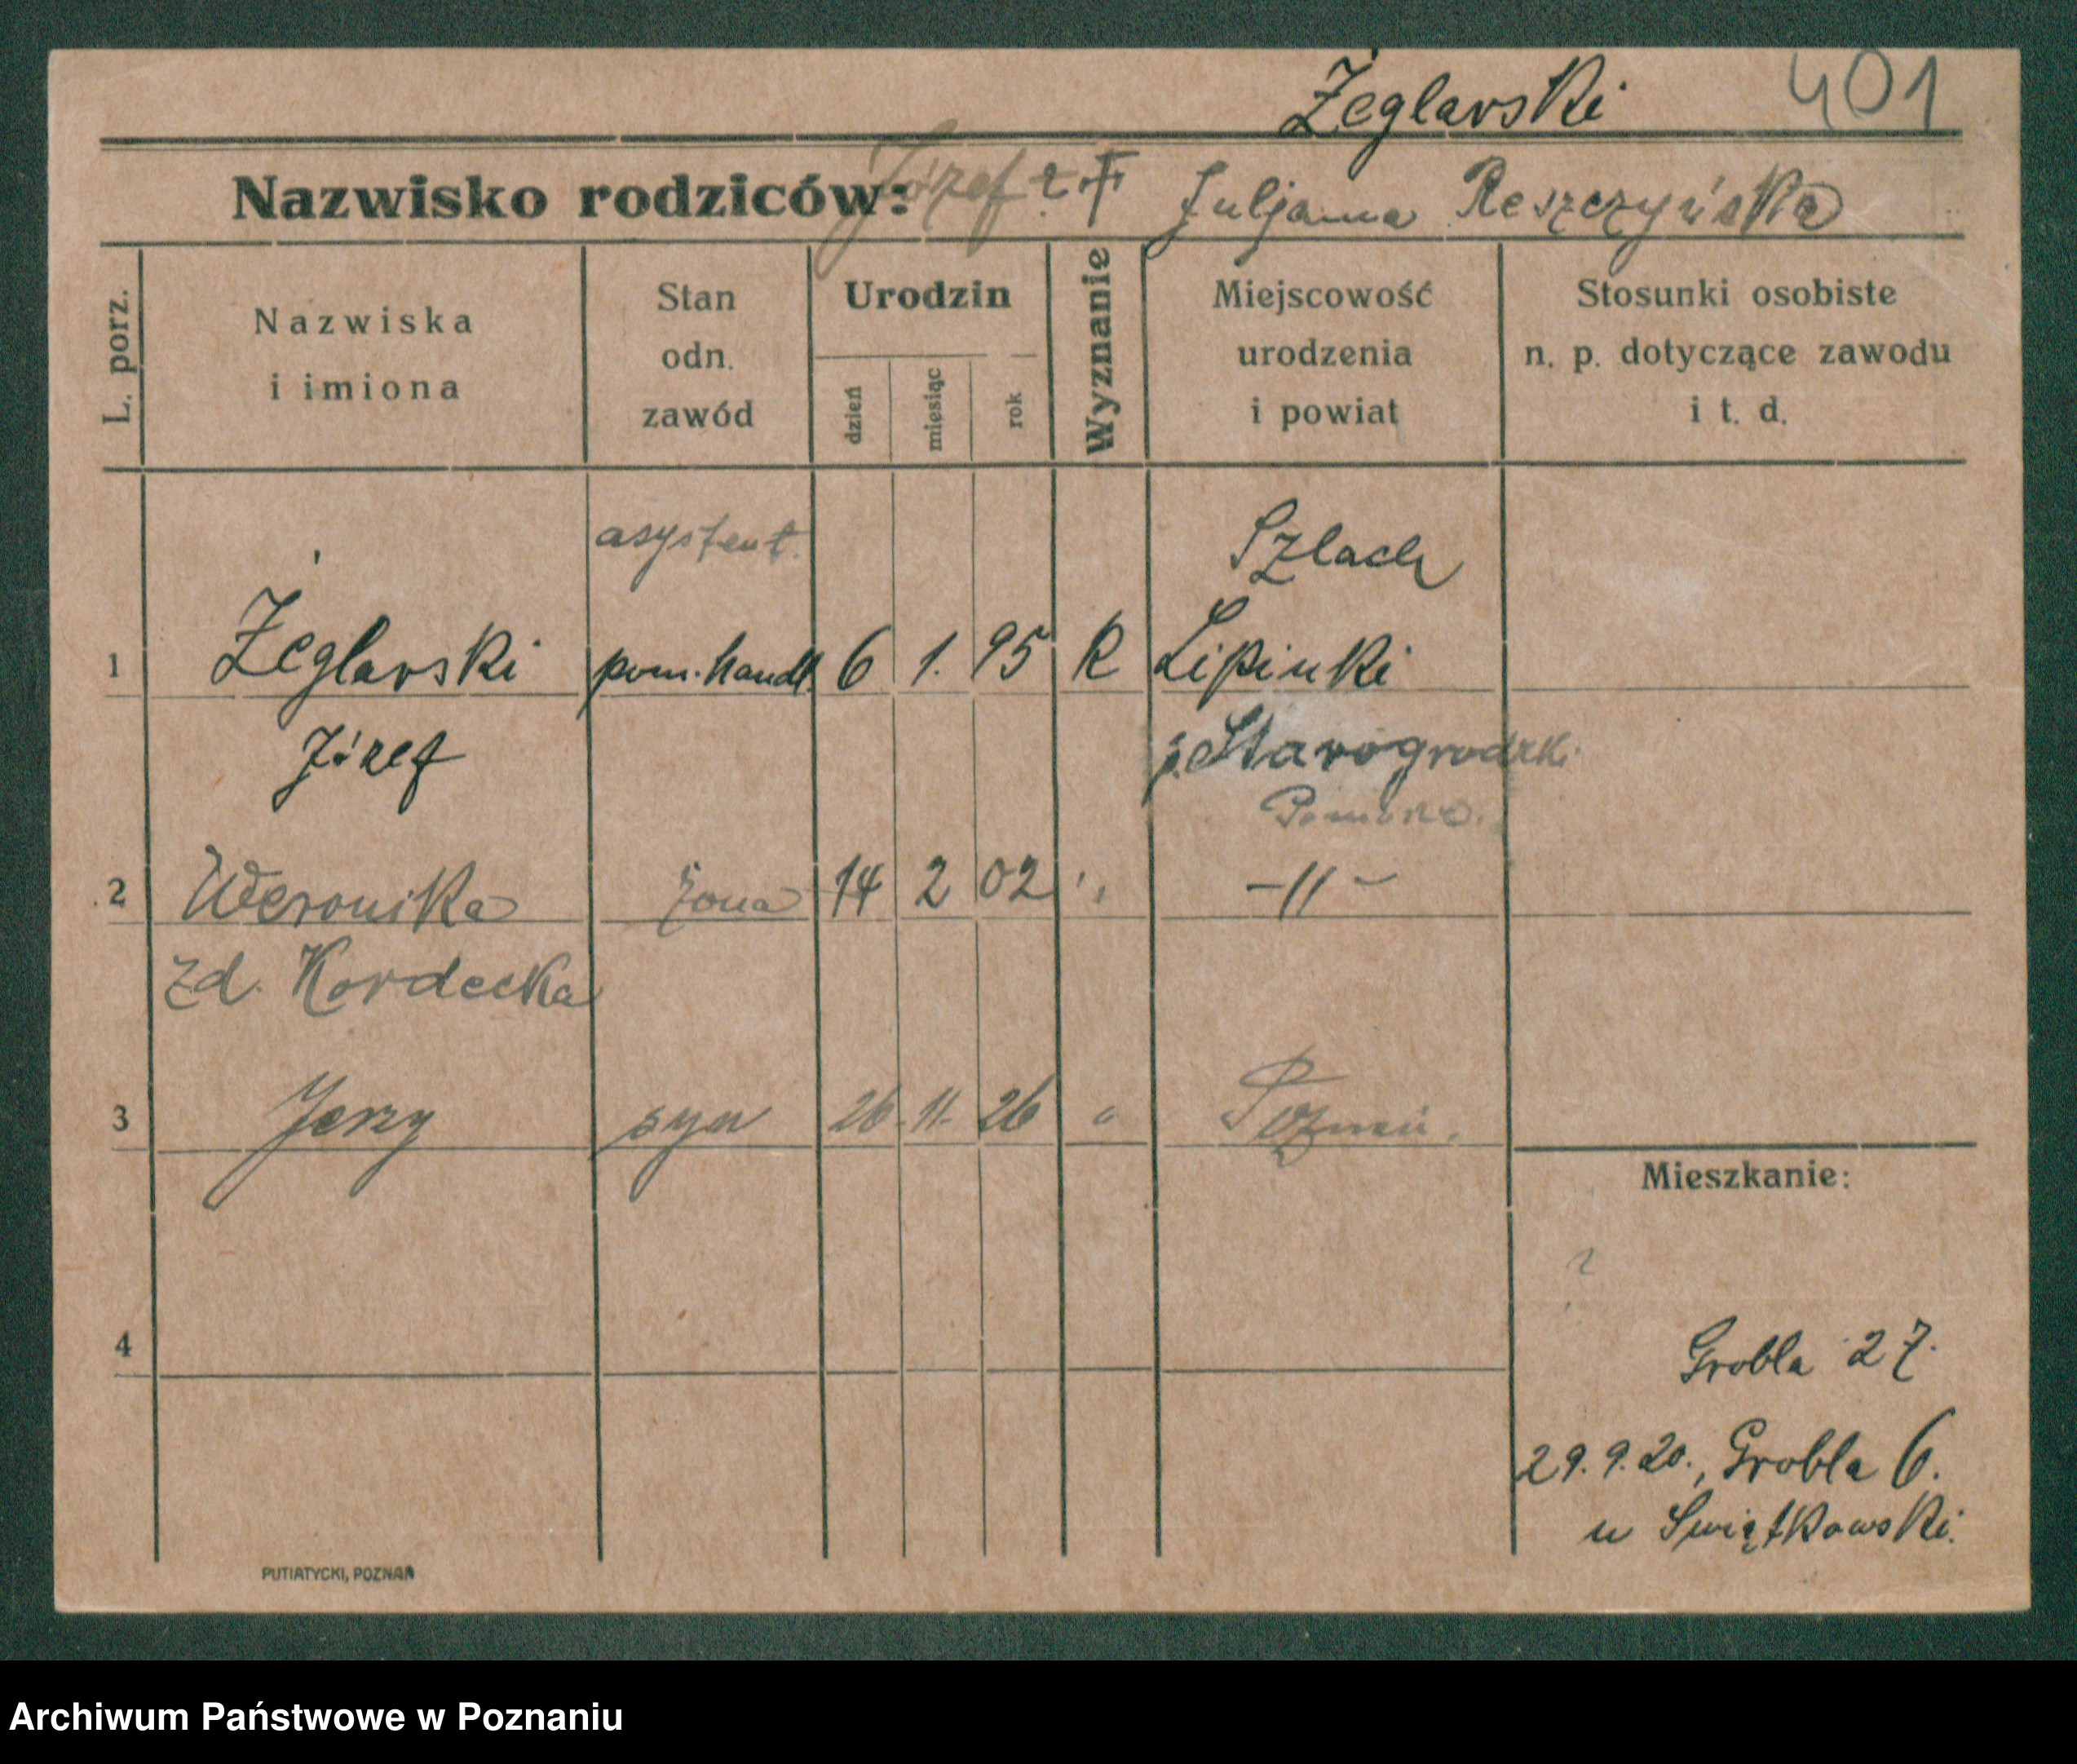 Żeglarski 401
Nazwisko rodziców: Józef i Juljanna Reszczyńska
L. porz.
Nazwiska
i imiona
Stan
odn.
zawód
Urodzin
dzień
miesiąc
rok
Wyznanie
Miejscowość
urodzenia
i powiat
Stosunki osobiste
n. p. dotyczące zawodu
i t. d.
asystent. Szlach
1 Żeglarski pom. handl. 6 1. 95 R Lipinki
Józef p. Starogrodzki
2 Weronika żona 14 2 02 " -"-
zd. Kordecka
3 Jerzy syn 26. 11. 26 " Poznań.
Mieszkanie:
?
4
Grobla 27.
29.9.20., Grobla 6.
u Swiątkowski.
PUTIATYCKI, POZNAŃ
Archiwum Państwowe w Poznaniu